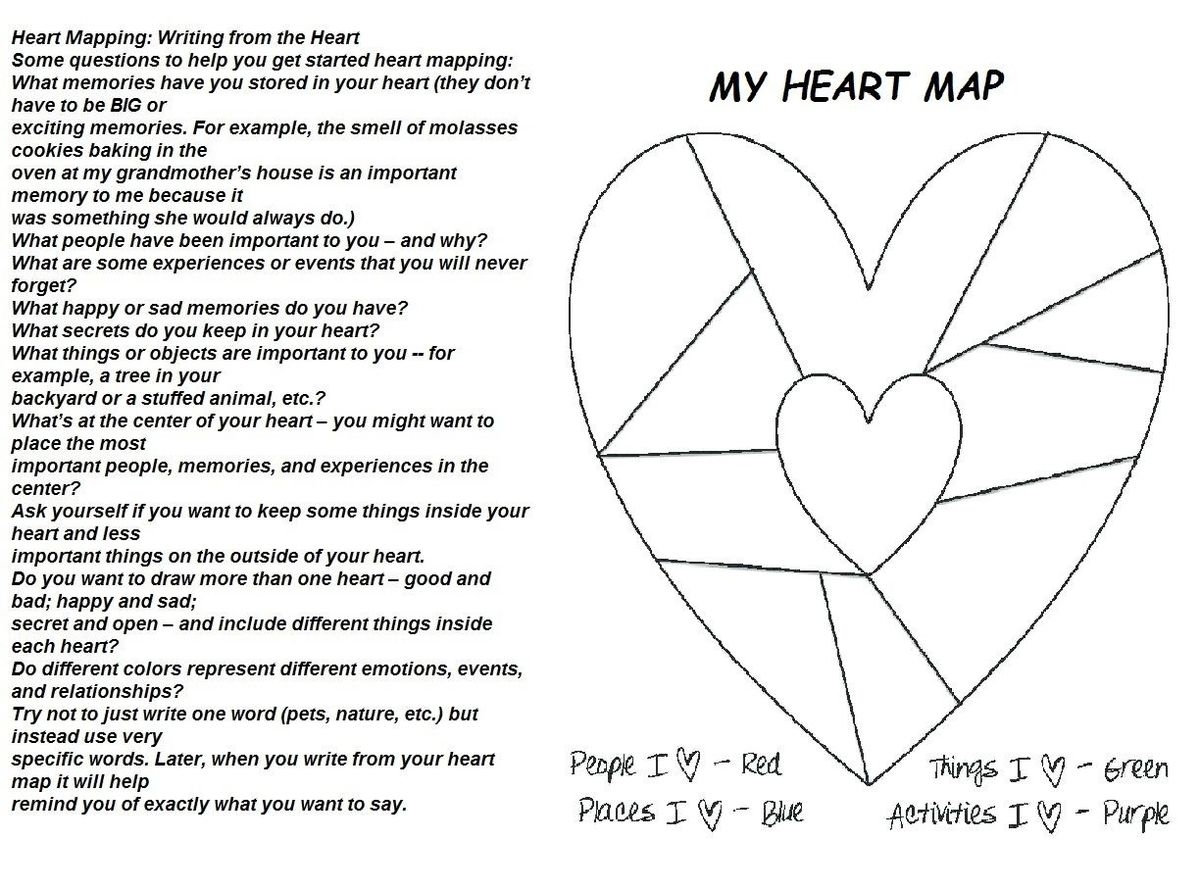 Heart Mapping: Writing from the Heart
Some questions to help you get started heart mapping:
What memories have you stored in your heart (they don’t
have to be BIG or
exciting memories. For example, the smell of molasses
cookies baking in the
oven at my grandmother’s house is an important
memory to me because it
was something she would always do.)
What people have been important to you – and why?
What are some experiences or events that you will never
forget?
What happy or sad memories do you have?
What secrets do you keep in your heart?
What things or objects are important to you -- for
example, a tree in your
backyard or a stuffed animal, etc.?
What’s at the center of your heart – you might want to
place the most
important people, memories, and experiences in the
center?
Ask yourself if you want to keep some things inside your
heart and less
important things on the outside of your heart.
Do you want to draw more than one heart – good and
bad; happy and sad;
secret and open – and include different things inside
each heart?
Do different colors represent different emotions, events,
and relationships?
Try not to just write one word (pets, nature, etc.) but
instead use very
specific words. Later, when you write from your heart
map it will help
remind you of exactly what you want to say.
MY HEART MAP
People I ♡ – Red
Places I ♡ – Blue
Things I ♡ – Green
Activities I ♡ – Purple